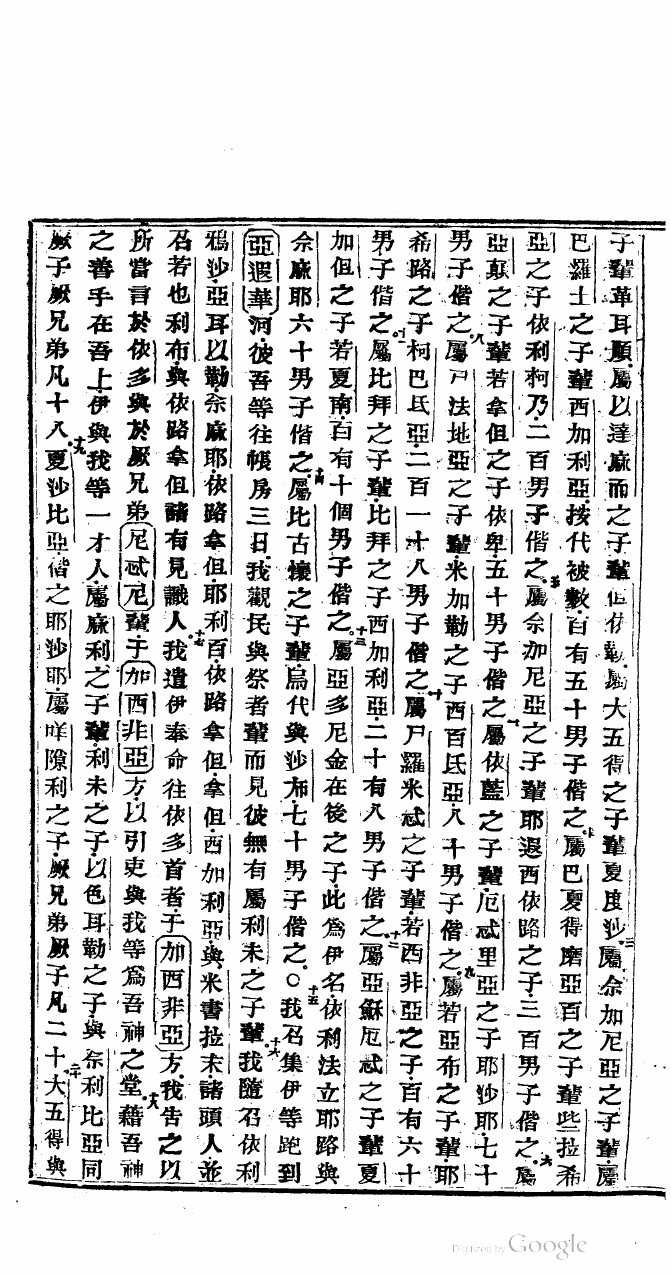 子輩革耳順屬以達麻而之子輩但依勒屬大五得之子輩夏度沙三屬佘加尼亞之子輩屬
巴羅士之子輩西加利亞按代被數百有五十男子偕之四屬巴夏得磨亞百之子輩些拉希
亞之子依利柯乃二百男子偕之五屬佘加尼亞之子輩耶遐西依路之子三百男子偕之六屬
亞顛之子輩若拿但之子依卑五十男子偕之七屬依藍之子輩厄忒里亞之子耶沙耶七十
男子偕之八屬尸法地亞之子輩米加勒之子西百氐亞八十男子偕之九屬若亞布之子輩耶
希路之子柯巴氐亞二百一十八男子偕之十屬尸羅米忒之子輩若西非亞之子百有六十
男子偕之十一屬比拜之子輩比拜之子西加利亞二十有八男子偕之十二屬亞穌厄忒之子輩夏
加但之子若夏南百有十個男子偕之十三屬亞多尼金在後之子此為伊名依利法立耶路與
佘麻耶六十男子偕之十四屬比古懷之子輩烏代與沙布七十男子偕之○十五我召集伊等跑到
亞遐華河彼吾等往帳房三日我觀民與祭者輩而見彼無有屬利未之子輩十六我隨召依利
鴉沙亞耳以勒佘麻耶依路拿但耶利百依路拿但拿但西加利亞與米書拉末諸頭人並
召若也利布與依路拿但諸有見識人十七我遣伊奉命往依多首者于加西非亞方我告之以
所當言於依多與於厥兄弟尼忒尼輩于加西非亞方以引吏與我等為吾神之堂十八藉吾神
之善手在吾上伊與我等一才人屬麻利之子輩利未之子以色耳勒之子與佘利比亞同
厥子厥兄弟凡十八十九夏沙比亞偕之耶沙耶屬咩隙利之子厥兄弟厥子凡二十二十大五得與
Digitized by Google